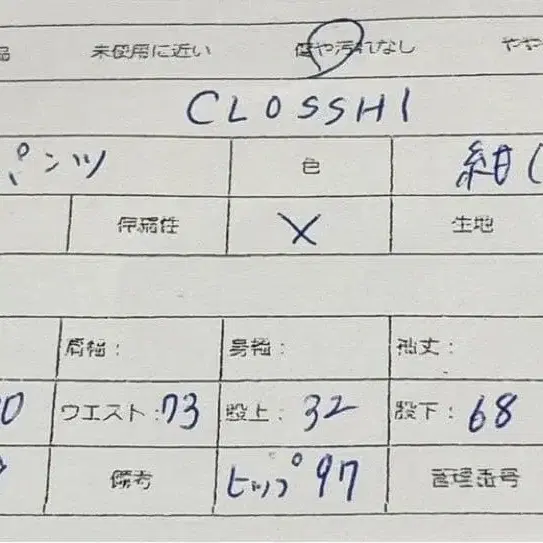 未使用に近い 傷や汚れなし やや
CLOSSHI
パンツ 色 紺(
伸縮性 × 生地
肩幅: 身幅: 袖丈:
0 ウエスト:73 股上:32 股下:68
備考 ヒップ97 管理番号